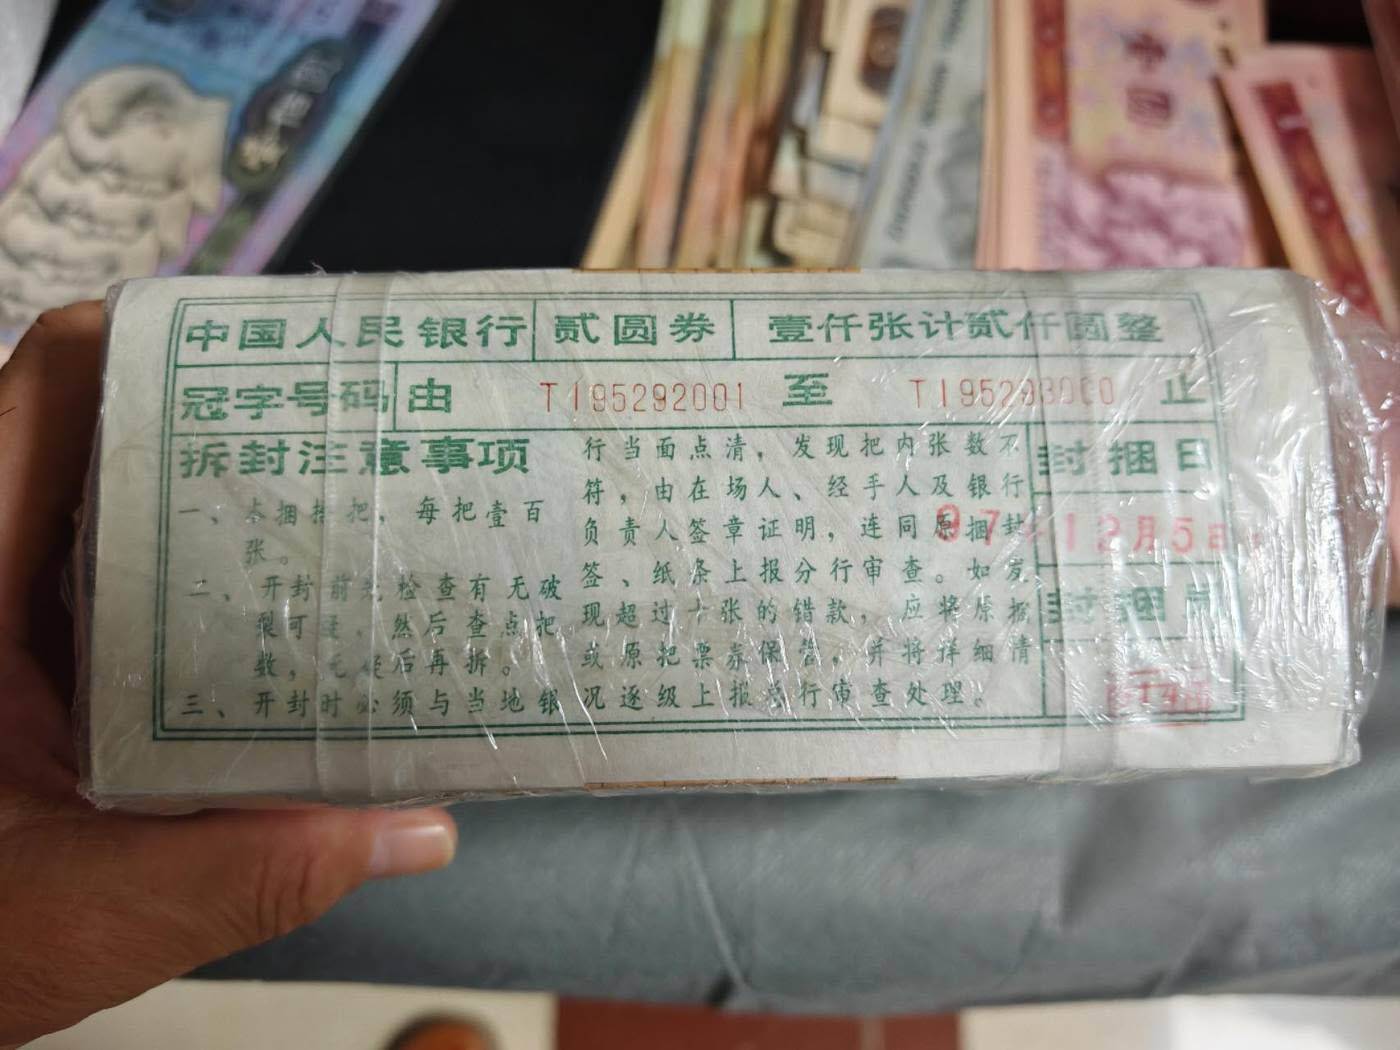 中国人民银行 贰圆券 壹仟张计贰仟圆整
冠字号码 由 TI95292001 至 TI95293000 止
拆封注意事项
一、本捆拾把,每把壹百
张。
二、开封前先检查有无破
裂可疑,然后查点把
数,无疑后再拆。
三、开封时必须与当地银
行当面点清,发现把内张数不
符,由在场人、经手人及银行
负责人签章证明,连同原捆封
签、纸条上报分行审查。如发
现超过十张的错款,应将原捆
或原把票券保管,并将详细情
况逐级上报总行审查处理。
封捆日
97年12月5日
封捆员
壹圆